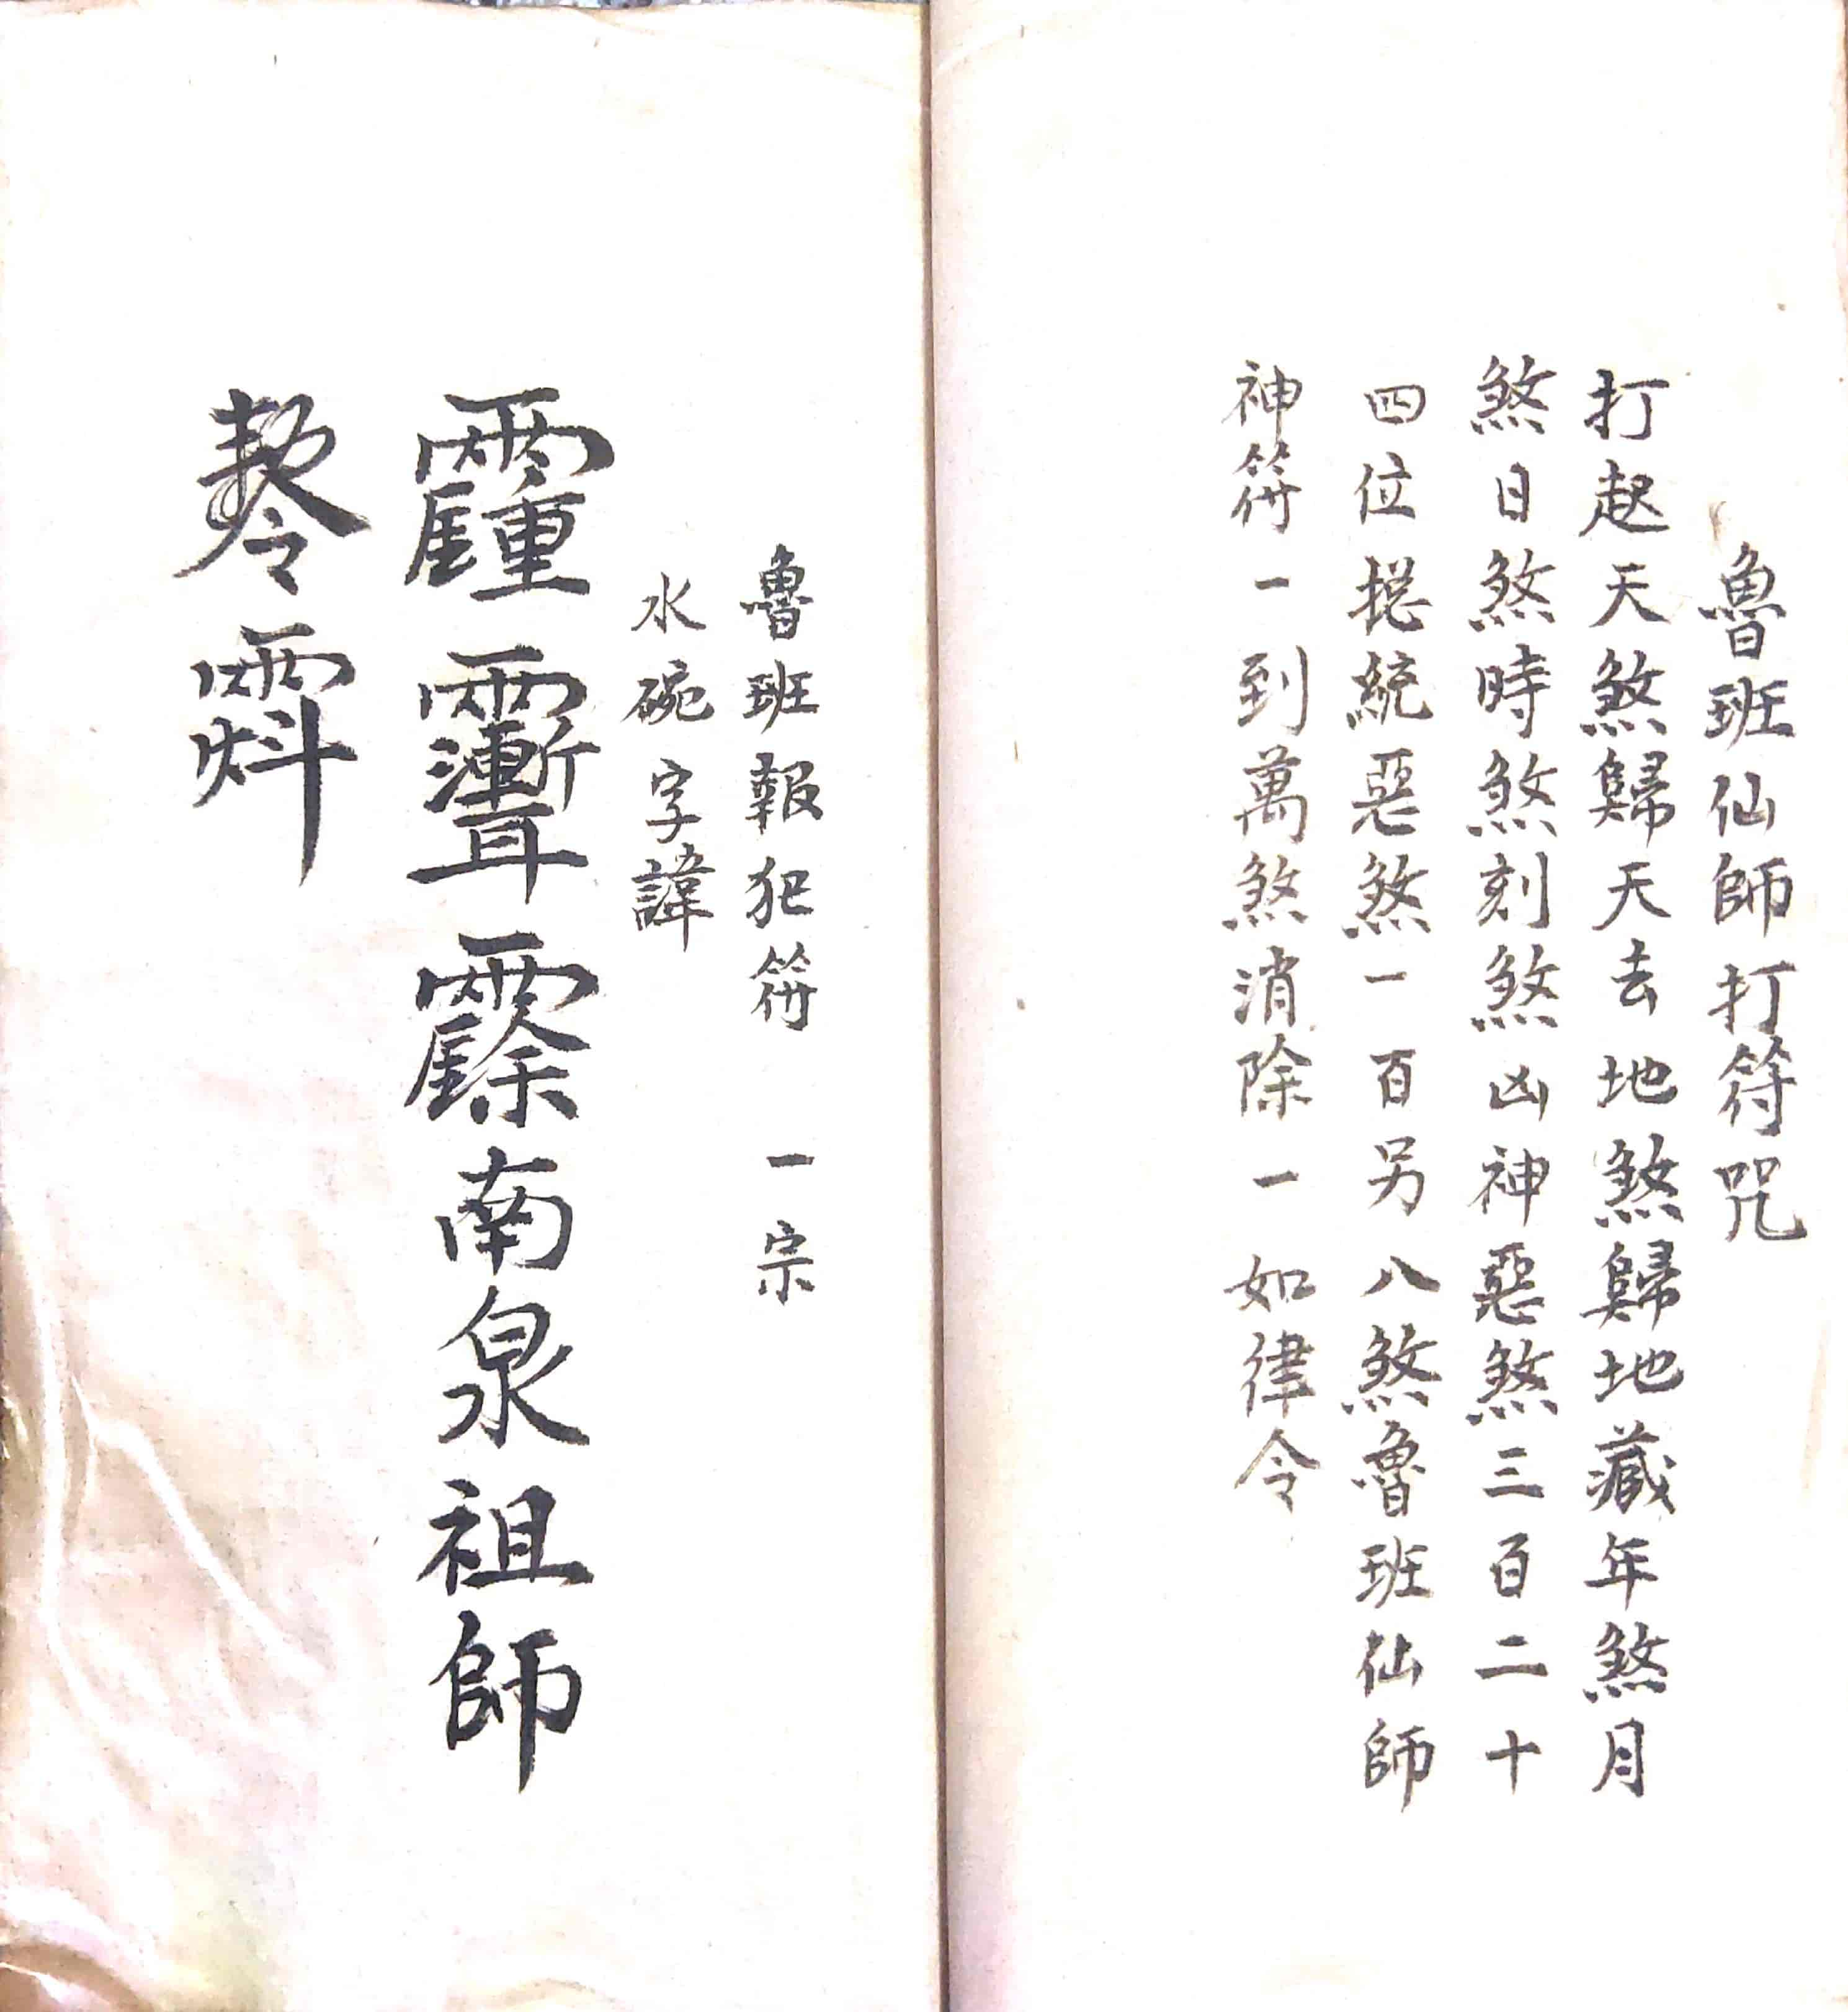 魯班仙師打符咒
打起天煞歸天去地煞歸地藏年煞月
煞日煞時煞刻煞凶神惡煞三百二十
四位揔統惡煞一百另八煞魯班仙師
神符一到萬煞消除一如律令
魯班報犯符 一宗
水碗字諱
南泉祖師